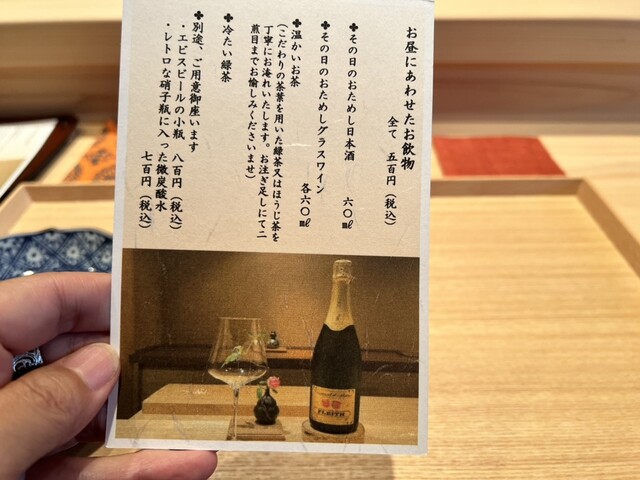 お昼にあわせたお飲物
全て 五百円（税込）
✤その日のおためし日本酒 六〇㎖
✤その日のおためしグラスワイン 各六〇㎖
✤温かいお茶
（こだわりの茶葉を用いた緑茶又はほうじ茶を
丁寧にお淹れいたします。お注ぎ足しにて二
煎目までお愉しみくださいませ）
✤冷たい緑茶
✤別途、ご用意御座います
・エビスビールの小瓶 八百円（税込）
・レトロな硝子瓶に入った微炭酸水
七百円（税込）